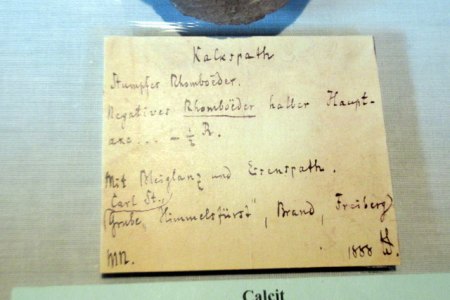 Kalkspath
Stumpfes Rhomboëder.
Negatives Rhomboëder halber Haupt-
axe... - ½ R.
Mit Bleiglanz und Eisenspath.
Carl St.,
(Grube „Himmelsfürst", Brand, Freiberg)
1888
Calcit